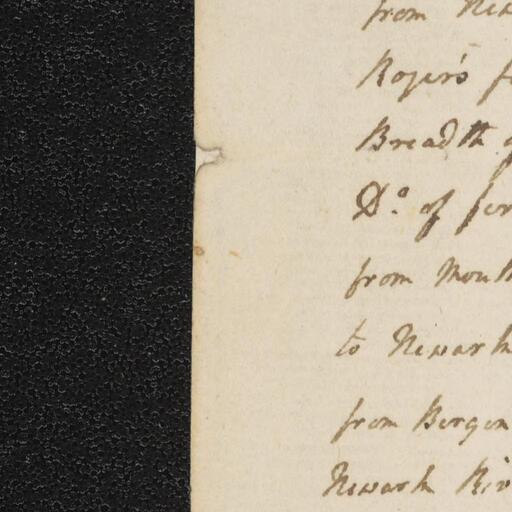 from New
Roger's f
Breadth of
Do. of fer
from Mouth
to Newark
from Bergen
Newark Riv